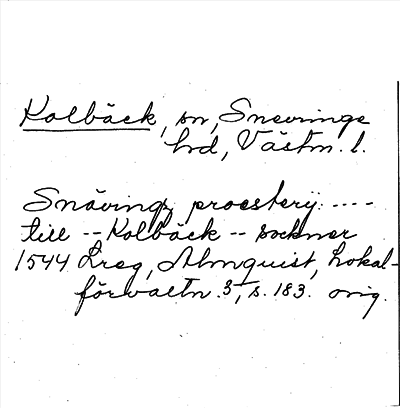 Kolbäck, sn, Snevringe
hd, Västm. l.
Snäving proesterij ----
till -- Kolbäck -- sockner
1544 Lreg, Almquist, Lokal-
förvaltn. 3, s. 183. orig.